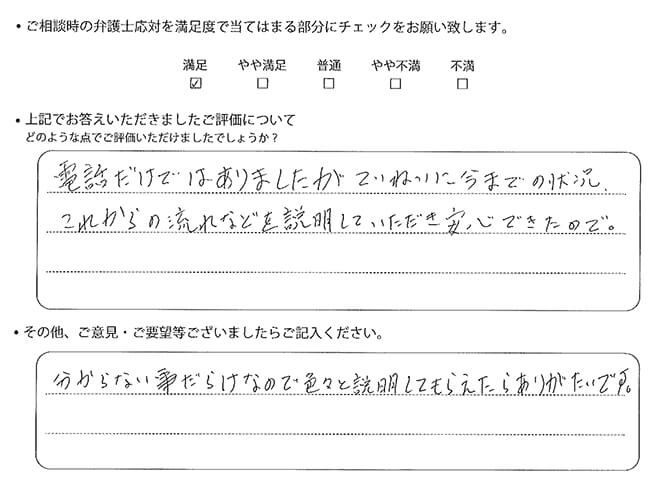 ・ご相談時の弁護士応対を満足度で当てはまる部分にチェックをお願い致します。
満足 やや満足 普通 やや不満 不満
☑ ☐ ☐ ☐ ☐
・上記でお答えいただきましたご評価について
どのような点でご評価いただけましたでしょうか?
電話だけではありましたがていねいに今までの状況、
これからの流れなどを説明していただき安心できたので。
・その他、ご意見・ご要望等ございましたらご記入ください。
分からない事だらけなので色々と説明してもらえたらありがたいです。